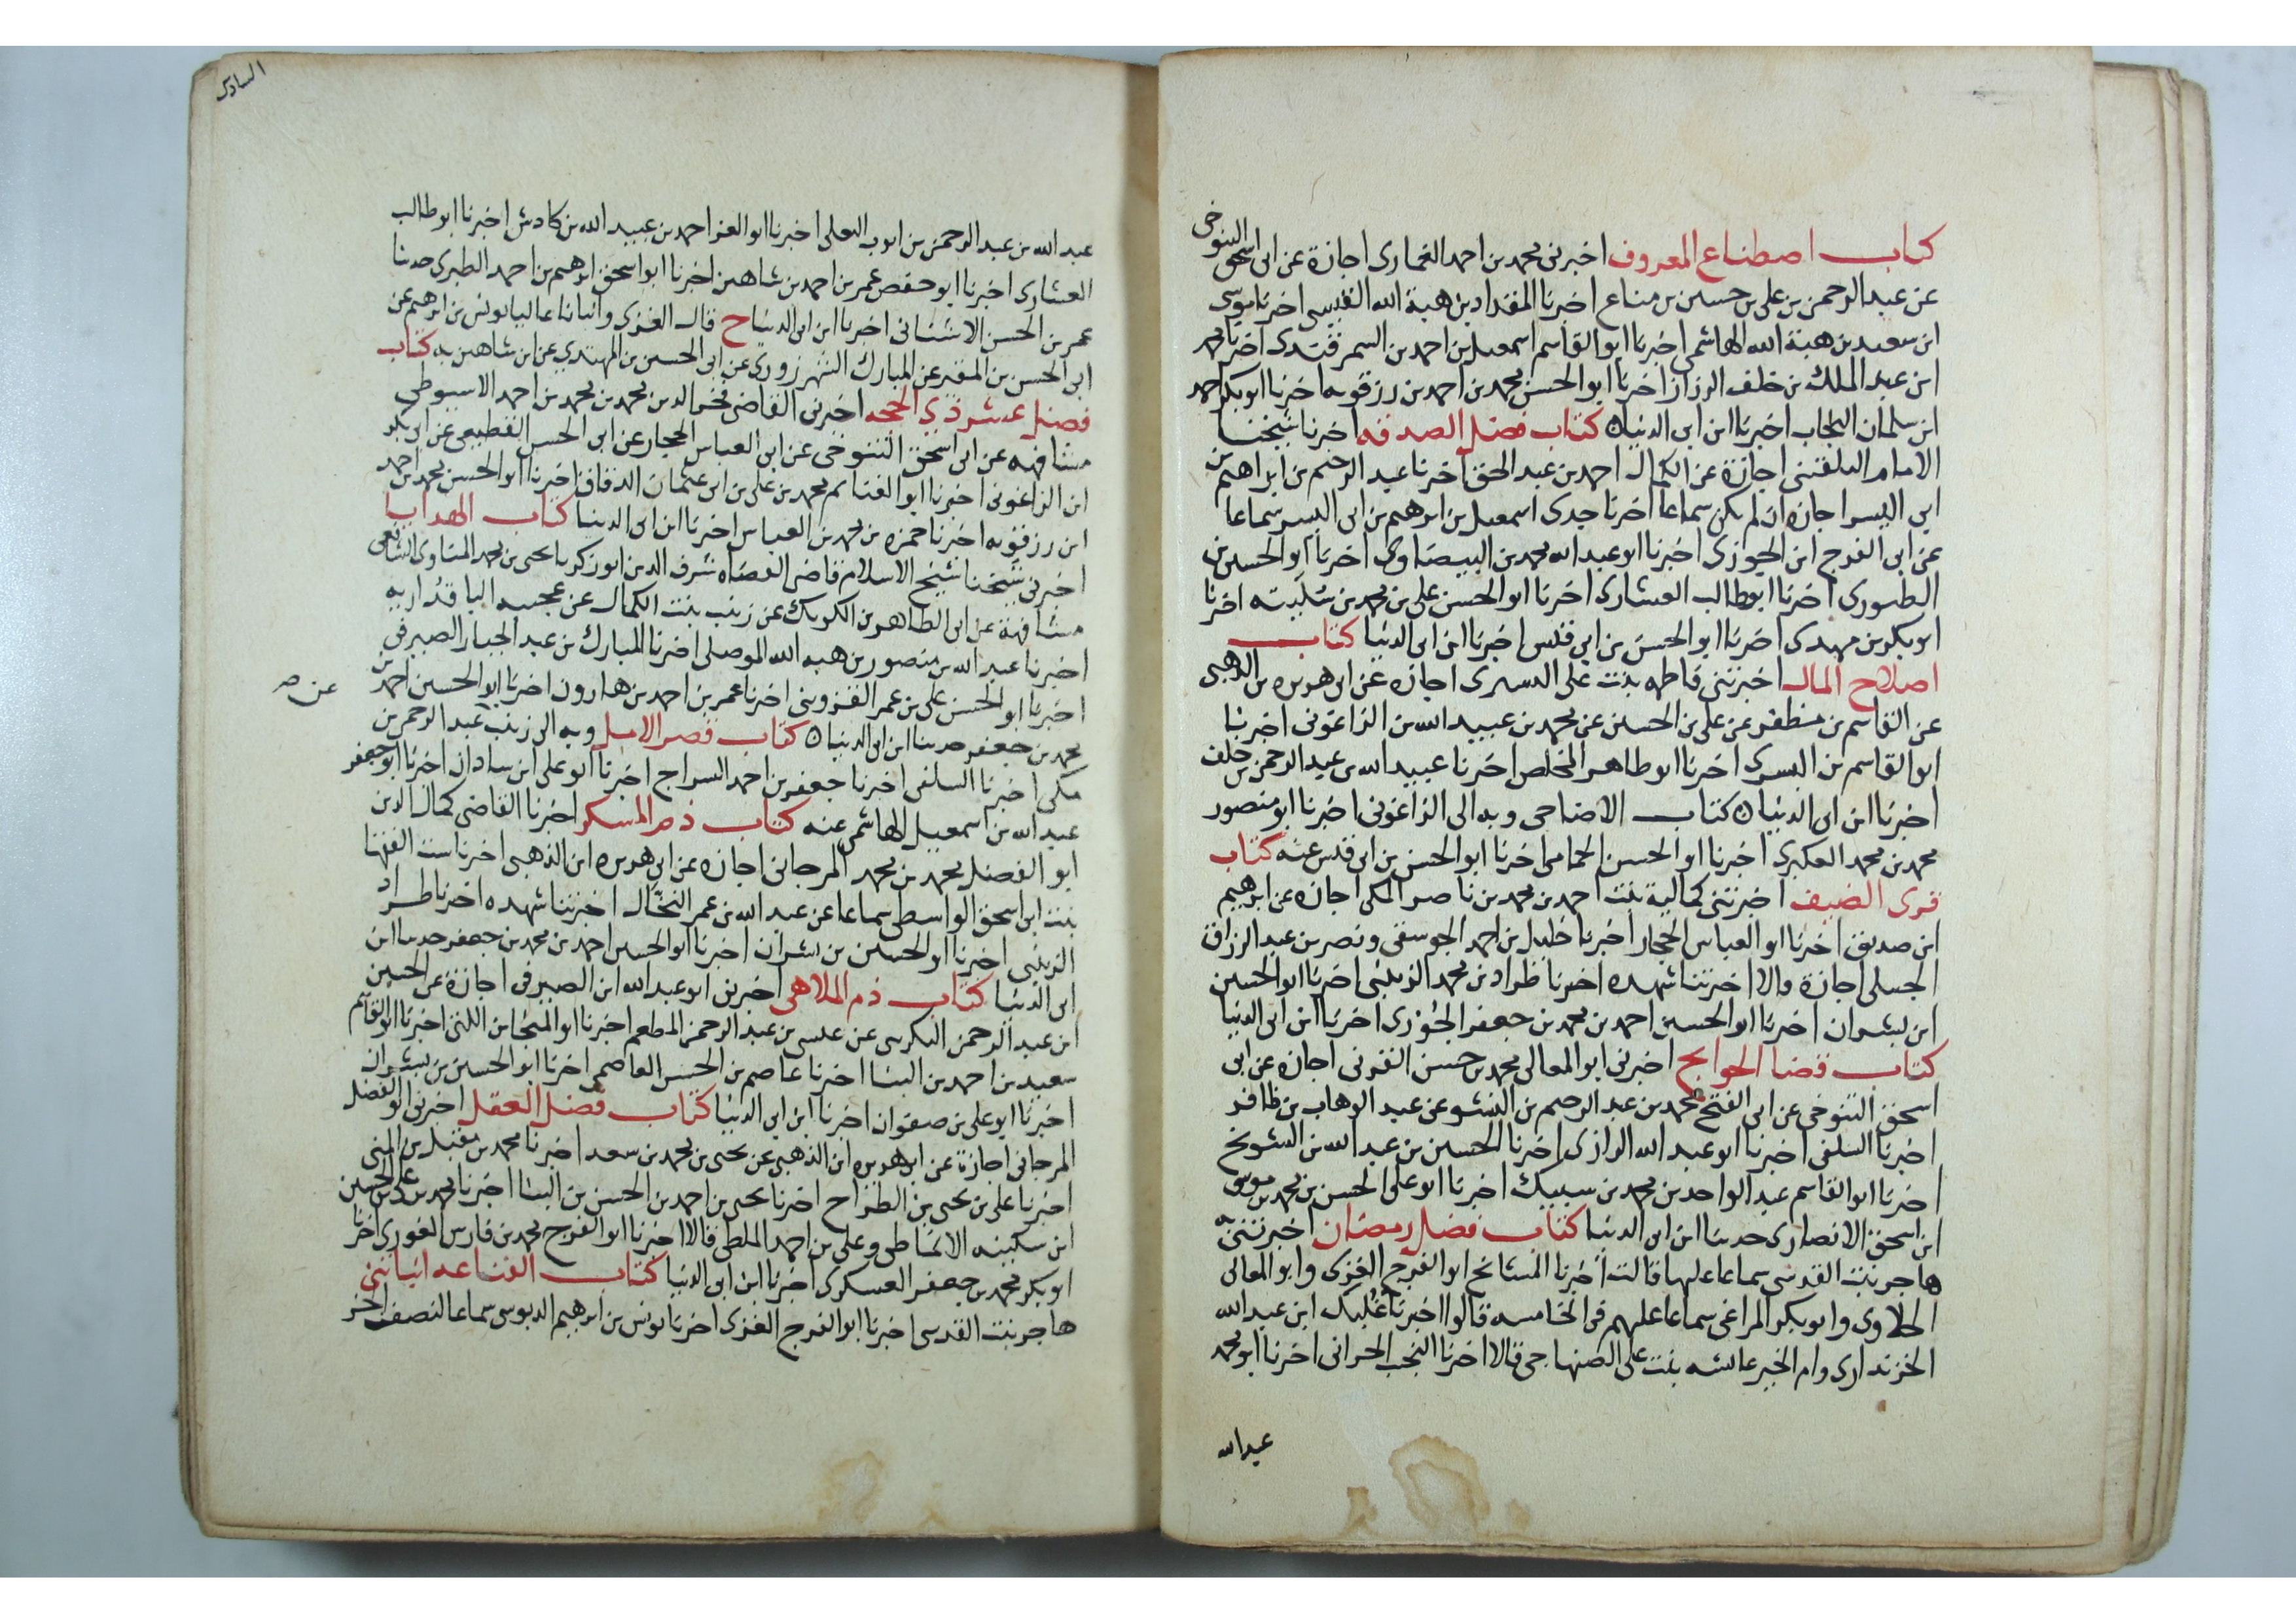 كتاب اصطناع المعروف اخبرنى محمد بن احمد الغمارى اجازة عن ابى اسحق التنوخى
عن عبد الرحمن بن على بن حسين بن مناع اخبرنا المقداد بن هبة الله القيسى اخبرنا موسى
ابن سعيد بن هبة الله الهاشمى اخبرنا ابو القاسم اسمعيل بن احمد بن السمرقندى اخبرنا محمد
ابن عبد الملك بن خلف الرزاز اخبرنا ابو الحسن محمد بن احمد بن رزقويه اخبرنا ابو بكر احمد
ابن سلمان النجاد اخبرنا ابن ابى الدنيا ه كتاب فضل الصدقه اخبرنا شيخنا
الامام البلقينى اجازة عن الكمال احمد بن عبد الحق اخبرنا عبد الرحيم بن ابراهيم بن
ابى اليسر اجازه ان لم يكن سماعا اخبرنا جدى اسمعيل بن ابرهيم بن ابى اليسر سماعا
عن ابى الفرج ابن الجوزى اخبرنا ابو عبد الله محمد بن البيضاوى اخبرنا ابو الحسين بن
الطيورى اخبرنا ابو طالب العشارى اخبرنا ابو الحسن على بن محمد بن اخبرنا
ابو بكر بن مهدى اخبرنا ابو الحسن بن ابى قيس اخبرنا ابن ابى الدنيا كتاب
اصلاح المال اخبرتنى فاطمه بنت على اليسرى اجازه عن ابى هريره بن الذهبى
عن القاسم بن مظفر عن على بن الحسين عن محمد بن عبيد الله بن الزاغونى اخبرنا
ابو القاسم بن البسرى اخبرنا ابو طاهر المخلص اخبرنا عبيد الله بن عبد الرحمن بن خلف
اخبرنا ابن ابى الدنيا ه كتاب الاضاحى وبه الى الزاغونى اخبرنا ابو منصور
محمد بن محمد العكبرى اخبرنا ابو الحسن الحمامى اخبرنا ابو الحسن بن ابى قيس عنه كتاب
قرى الضيف اخبرتنى كمالية بنت احمد بن محمد بن ناصر المكى اجازه عن ابرهيم
ابن صديق اخبرنا ابو العباس الحجار اخبرنا خليل بن احمد الجوسقى ونصر بن عبد الرزاق
الجيلى اجازة قالا اخبرتنا شهده اخبرنا طراد بن محمد الزينبى اخبرنا ابو الحسين
ابن بشران اخبرنا ابو الحسين احمد بن محمد بن جعفر الجوزى اخبرنا ابن ابى الدنيا
كتاب قضا الحوايج اخبرنى ابو المعالى محمد بن حسن القرنى اجازه عن ابى
اسحق التنوخى عن ابى الفتح محمد بن عبد الرحيم بن النشو عن عبد الوهاب بن ظافر
اخبرنا السلفى اخبرنا ابو عبد الله الرازى اخبرنا الحسين بن عبد الله بن الشويخ
اخبرنا ابو القاسم عبد الواحد بن محمد بن سبيك اخبرنا ابو على الحسن بن محمد بن موسى
ابن اسحق الانصارى حدثنا ابن ابى الدنيا كتاب فضل رمضان اخبرتنى
هاجر بنت القدسى سماعا عليها قالت اخبرنا المشايخ ابو الفرج الغزى وابو المعالى
الحلاوى وابو بكر المراغى سماعا عليهم فى الخامسه قالوا اخبرنا غلبك ابن عبد الله
الخزندارى وام الخير عايشه بنت على الصنهاجى قالا اخبرنا النجيب الحرانى اخبرنا ابو محمد
عبد الله
السادس
عبد الله بن عبد الرحمن بن ايوب البعلى اخبرنا ابو العز احمد بن عبيد الله بن كادش اخبرنا ابو طالب
العشارى اخبرنا ابو حفص عمر بن احمد بن شاهين اخبرنا ابو اسحق ابرهيم بن احمد الطبرى حدثنا
عمر بن الحسن الاشنانى اخبرنا ابن ابى الدنيا ح قال الغزى وانبانا عاليا يونس بن ابرهيم عن
ابى الحسن بن المقير عن المبارك الشهرزورى عن ابى الحسين بن المهتدى عن ابن شاهين به كتاب
فضل عشر ذى الحجه اخبرنى القاضى فخر الدين محمد بن محمد بن احمد الاسيوطى
مشافهه عن ابى اسحق التنوخى عن ابى العباس الحجار عن ابى الحسن القطيعى عن ابى بكر
ابن الزاغونى اخبرنا ابو الغنائم محمد بن على بن ابى عثمان الدقاق اخبرنا ابو الحسن محمد بن احمد
ابن رزقويه اخبرنا حمزه بن محمد بن العباس اخبرنا ابن ابى الدنيا كتاب الهدايا
اخبرنى شيخنا شيخ الاسلام قاضى القضاه شرف الدين ابو زكريا يحيى بن محمد المناوى الشافعى
مشافهة عن ابى الطاهر بن الكويك عن زينب بنت الكمال عن عجيبه الباقداريه
اخبرنا عبد الله بن منصور بن هبه الله الموصلى اخبرنا المبارك بن عبد الجبار الصيرفى
اخبرنا ابو الحسن على بن عمر القزوينى اخبرنا عمر بن احمد بن هارون اخبرنا ابو الحسين احمد بن
محمد بن جعفر حدثنا ابن ابى الدنيا ه كتاب قصر الامل وبه الى زينب عبد الرحمن بن
عن صح
مكى اخبرنا السلفى اخبرنا جعفر بن احمد السراج اخبرنا ابو على ابن شاذان اخبرنا ابو جعفر
عبد الله بن اسمعيل الهاشمى عنه كتاب ذم المسكر اخبرنا القاضى كمال الدين
ابو الفضل محمد بن محمد المرجانى اجازه عن ابى هريره ابن الذهبى اخبرنا ست الفقها
بنت ابى اسحق الواسطى سماعا عن عبد الله بن عمر النخال اخبرتنا شهده اخبرنا طراد
الزينبى اخبرنا ابو الحسين بن بشران اخبرنا ابو الحسين احمد بن محمد بن جعفر حدثنا ابن
ابى الدنيا كتاب ذم الملاهى اخبرنى ابو عبد الله ابن الصيرفى اجازة عن الحسين
ابن عبد الرحمن التكريتى عن عيسى بن عبد الرحمن المطعم اخبرنا ابو المنجا ابن اللتى اخبرنا ابو القاسم
سعيد بن احمد بن البنا اخبرنا عاصم بن الحسن العاصمى اخبرنا ابو الحسين بن بشران
اخبرنا ابو على بن صفوان اخبرنا ابن ابى الدنيا كتاب فضل العقل اخبرنى ابو الفضل
المرجانى اجازة عن ابى هريره ابن الذهبى عن يحيى بن محمد بن سعد اخبرنا محمد بن مقبل بن المنى
اخبرنا على بن يحيى بن الطراح اخبرنا يحيى بن احمد بن الحسن بن البنا اخبرنا محمد بن على بن الحسين
ابن سكينه الانماطى وعلى بن احمد الملطى قالا اخبرنا ابو الفرج محمد بن فارس الغورى اخبرنا
ابو بكر محمد بن جعفر العسكرى اخبرنا ابن ابى الدنيا كتاب القناعه انباتنى
هاجر بنت القدسى اخبرنا ابو الفرج الغزى اخبرنا يونس بن ابرهيم الدبوسى سماعا لنصفه الاخر